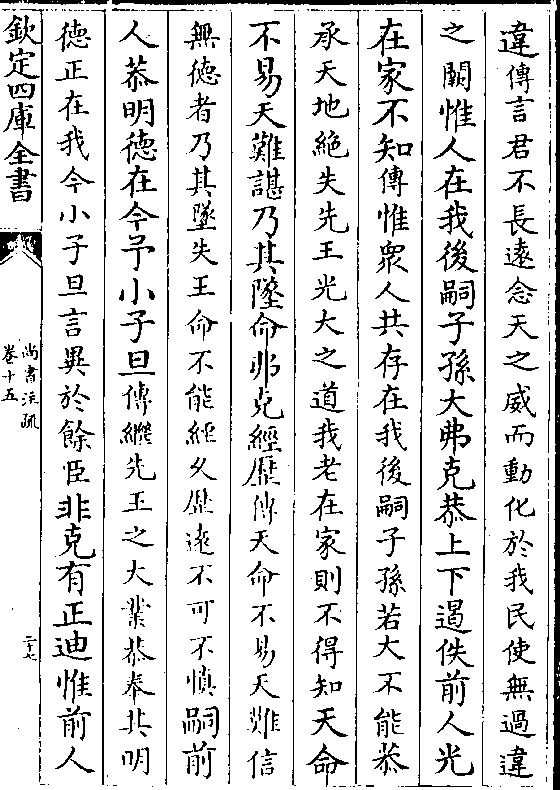 違傳言君不長遠念天之威而動化於我民使無過違
之闕惟人在我後嗣子孫大弗克恭上下遏佚前人光
在家不知傳惟衆人共存在我後嗣子孫若大不能恭
承天地絶失先王光大之道我老在家則不得知天命
不易天難諶乃其墜命弗克經歷傳天命不易天難信
無德者乃其墜失王命不能經久歷遠不可不慎嗣前
人恭明德在今予小子旦傳繼先王之大業恭奉其明
德正在我今小子旦言異於餘臣非克有正迪惟前人
欽定四庫全書
尚書注疏
卷十五
二十七